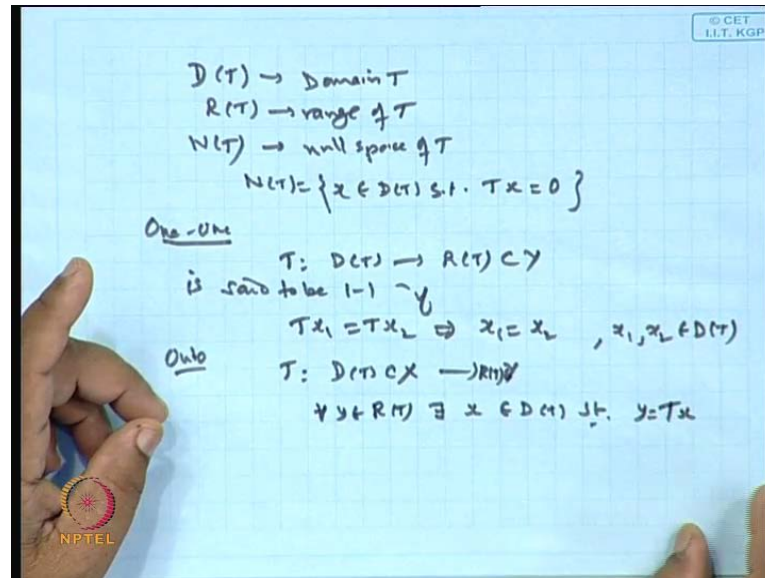 © CET
I.I.T. KGP
D(T) → Domain T
R(T) → range of T
N(T) → null space of T
N(T) = {x ∈ D(T) s.t. Tx = 0}
One-One
T: D(T) → R(T) ⊂ Y
is said to be 1-1 if
Tx₁ = Tx₂ ⇒ x₁ = x₂ , x₁, x₂ ∈ D(T)
Onto T: D(T) ⊂ X → R(T)
∀ y ∈ R(T) ∃ x ∈ D(T) st. y = Tx
NPTEL